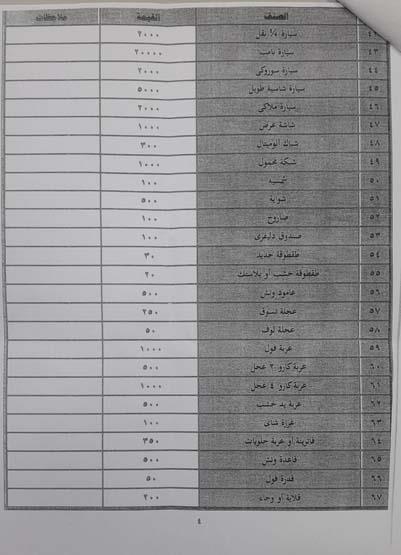 الصنف القيمة ملاحظات
٤٢ سيارة ¼ نقل ٢٠٠٠
٤٣ سيارة بامب ٢٠٠٠٠
٤٤ سيارة سوزوكي ٢٠٠٠
٤٥ سيارة شاسية طويل ٥٠٠٠
٤٦ سيارة ملاكي ٢٠٠٠
٤٧ شاشة عرض ١٠٠٠
٤٨ شباك الوميتال ٣٠٠
٤٩ شبكة محمول ١٠٠٠
٥٠ شمسيه ١٠٠
٥١ شواية ٥٠٠
٥٢ صاروخ ١٠٠
٥٣ صندوق دليفرى ١٠٠
٥٤ طقطوقة حديد ٣٠
٥٥ طقطوقة خشب او بلاستك ٢٠
٥٦ عامود ونش ٥٠٠
٥٧ عجلة تسوق ٢٥٠
٥٨ عجلة لوف ٥٠
٥٩ عربة فول ١٠٠٠
٦٠ عربة كارو ٢ عجل ٥٠٠
٦١ عربة كارو ٤ عجل ١٠٠٠
٦٢ عربة يد خشب ٥٠٠
٦٣ غرزة شاى ١٠٠
٦٤ فاترينة أو عربة حلويات ٣٥٠
٦٥ قاعدة ونش ٥٠٠
٦٦ قدرة فول ٥٠
٦٧ قلاية أو وعاء ٢٠٠
٤